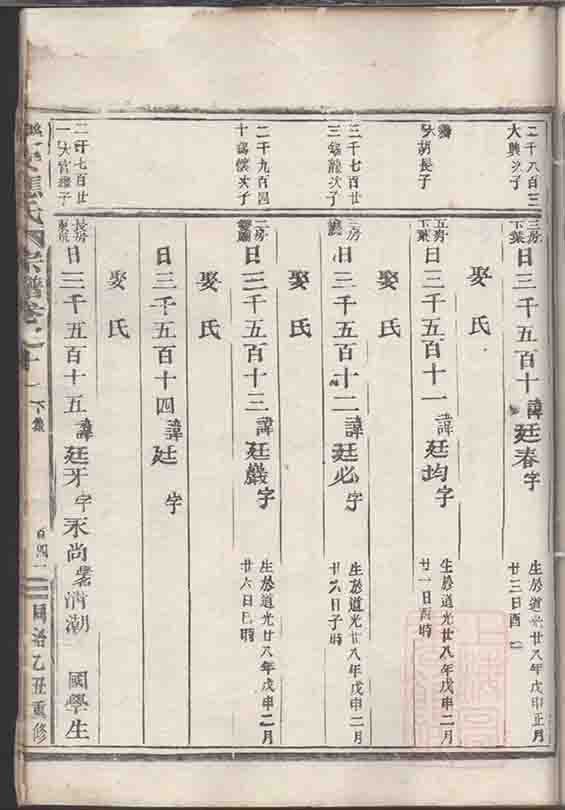 二千八百三
大興次子
三房
下葉
日三千五百十 諱廷春字
生於道光廿八年戊申正月
廿三日酉
娶氏
大胡長子
五房
下葉
日三千五百十一 諱廷均字
生於道光廿八年戊申二月
廿一日酉時
娶氏
三千七百廿
三房
日三千五百十二 諱廷必字
生於道光廿八年戊申二月
廿六日子時
娶氏
二千九百四
十萬懷次子
二房
日三千五百十三 諱廷嚴字
生於道光廿八年戊申二月
廿六日巳時
娶氏
日三千五百十四 諱廷 字
娶氏
二千七百廿
長房
日三千五百十五 諱廷牙字永尚 清潮 國學生
氏宗譜卷之十
同治乙丑重修